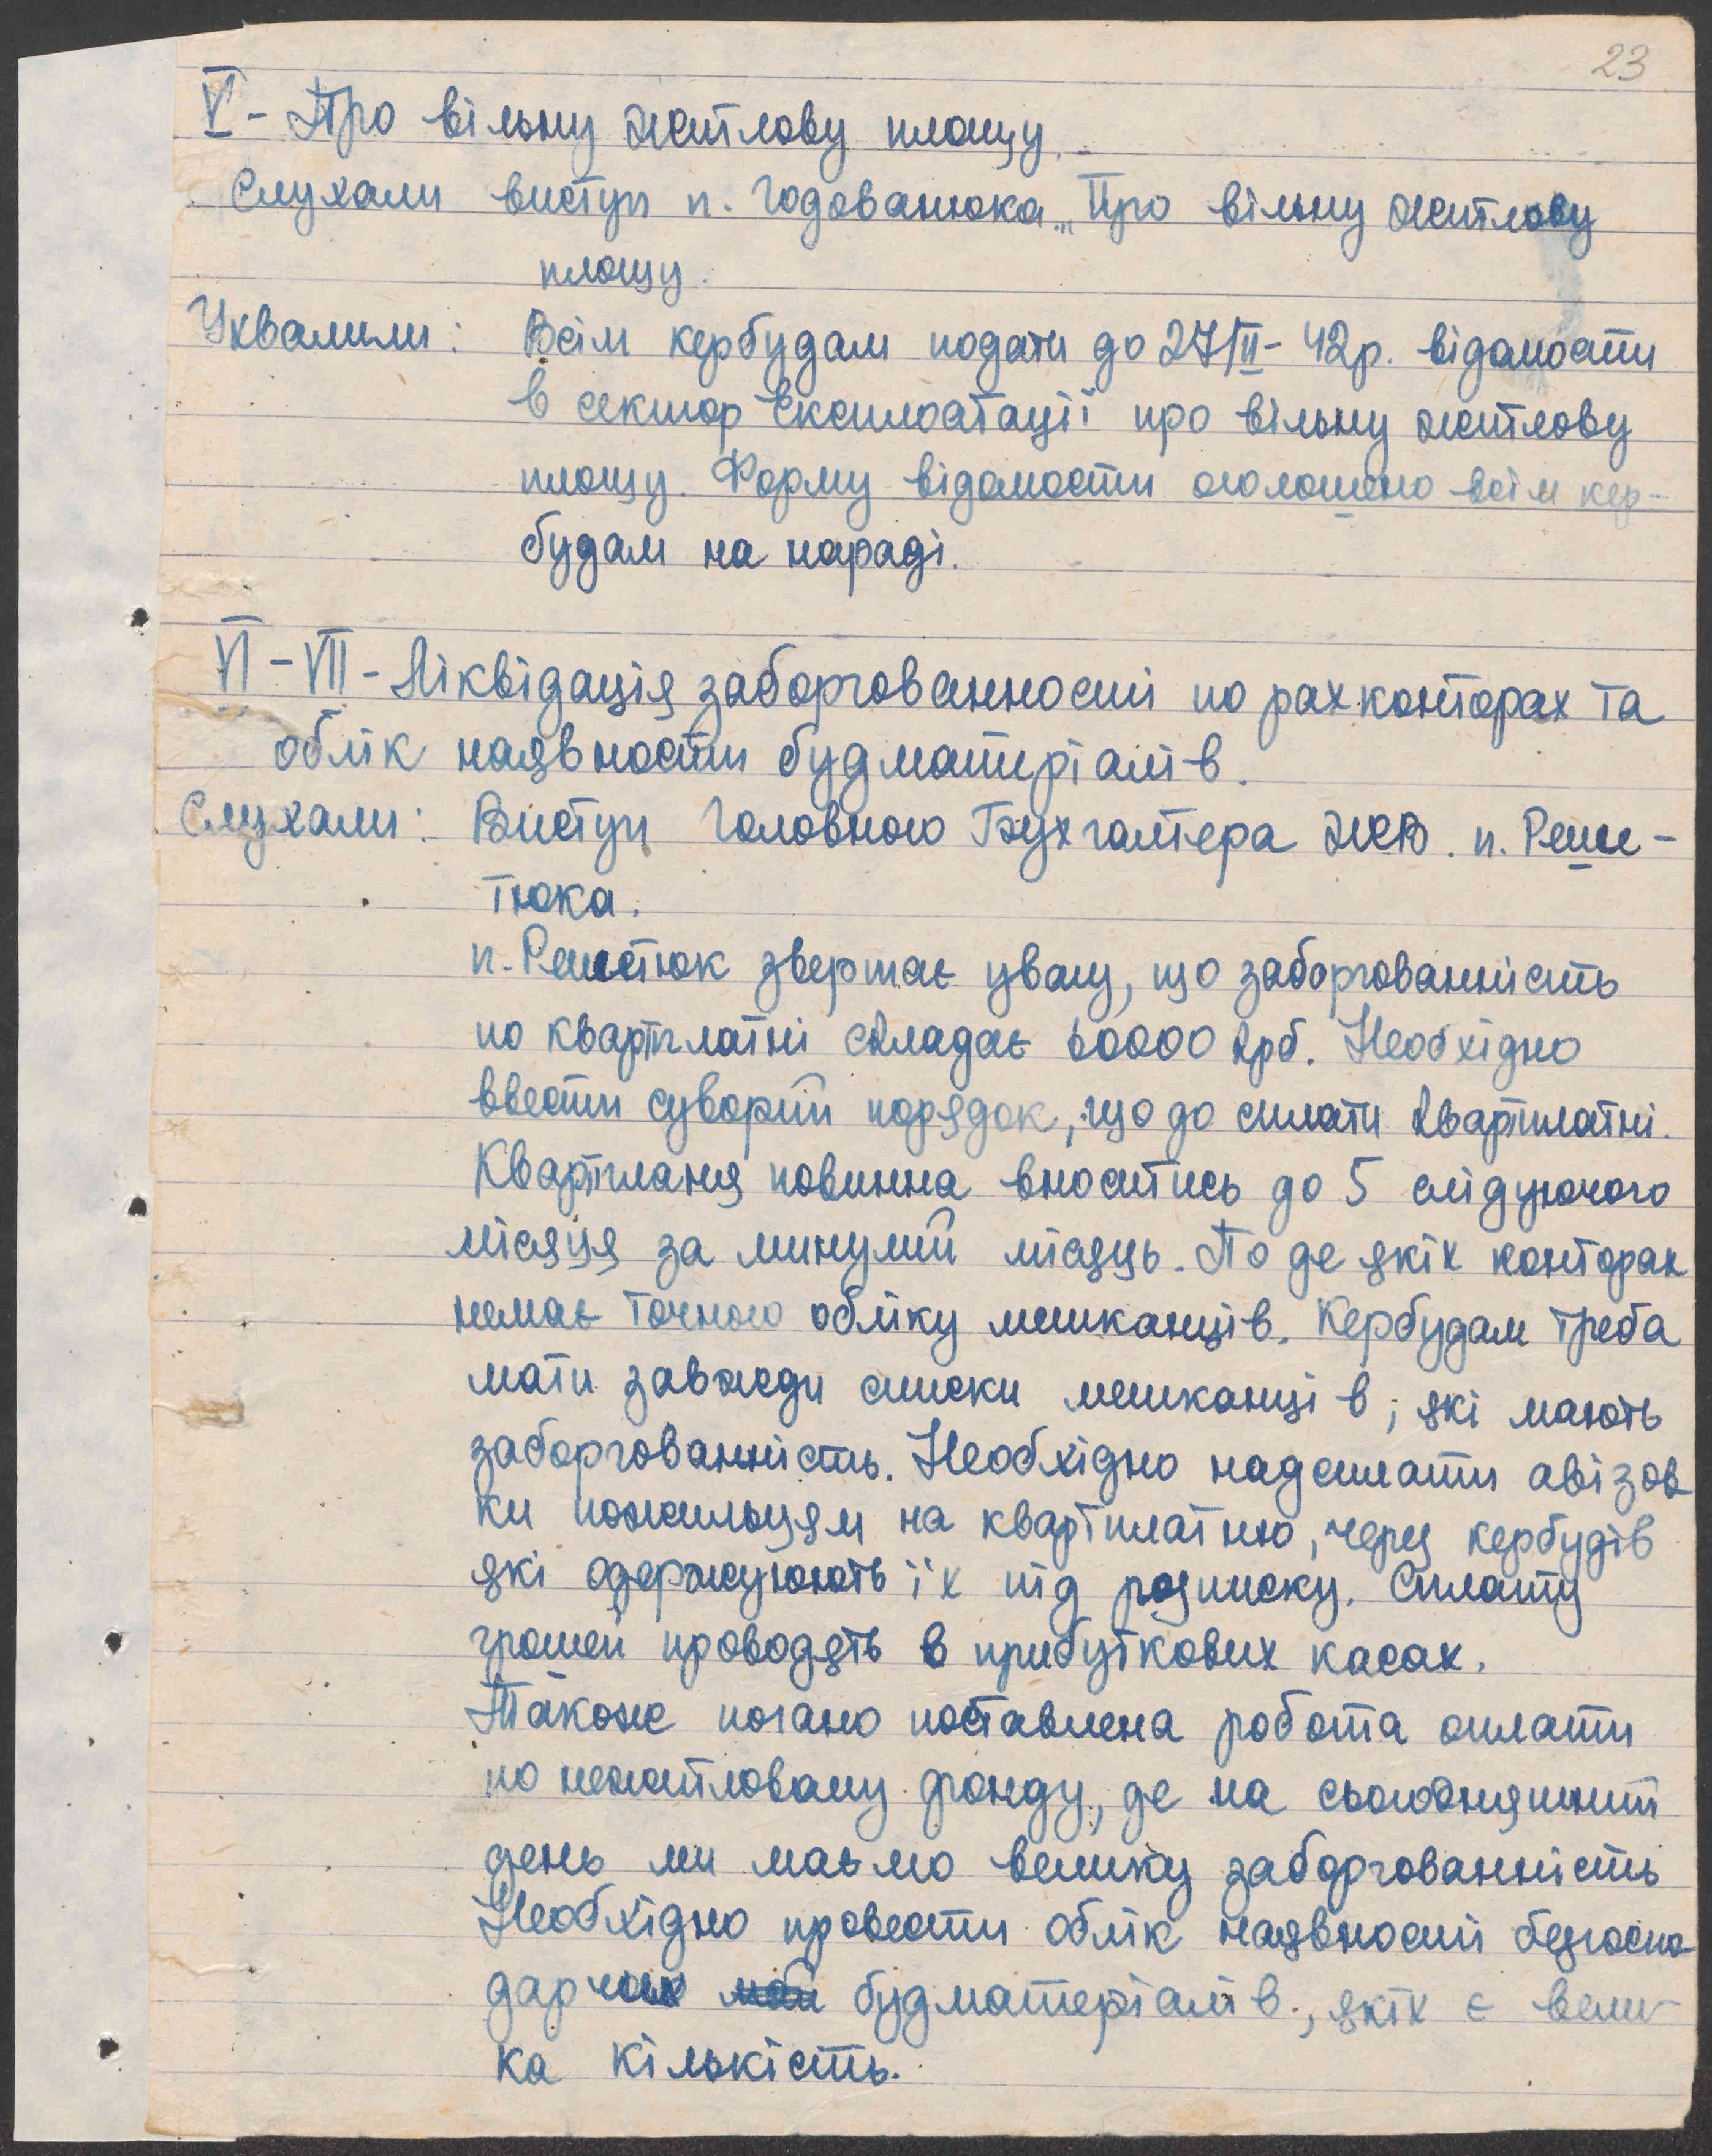 23
V - Про вільну житлову площу.
Слухали виступ п. Годованюка „Про вільну житлову
площу.
Ухвалили: Всім кербудам подати до 27/II - 42р. відомости
в сектор експлоатації про вільну житлову
площу. Форму відомости оголошено всім кер-
будам на нараді.
VI - VII - Ліквідація заборгованности по рахконторах та
облік наявности будматеріалів.
Слухали: Виступ Головного Бухгалтера ЖВ. п. Реше-
тюка.
п. Решетюк звертає увагу, що заборгованність
по квартплатні складає 60000 крб. Необхідно
ввести суворий порядок, що до сплати квартплатні.
Квартпланя повинна вноситись до 5 слідуючого
місяця за минулий місяць. По де якіх конторах
немає точного обліку мешканців. Кербудам треба
мати завжди списки мешканців, які мають
заборгованність. Необхідно надсилати авізов
ки пожильцям на квартплатню, через кербудів
які одержують їх під розписку. Сплату
грошей проводять в прибуткових касах.
Також погано поставлена робота оплати
по нежитловому фонду, де на сьогодняшний
день ми маємо велику заборгованність
Необхідно провести облік наявности безгоспо-
дарчих будматеріалів, якіх є вели-
ка кількість.